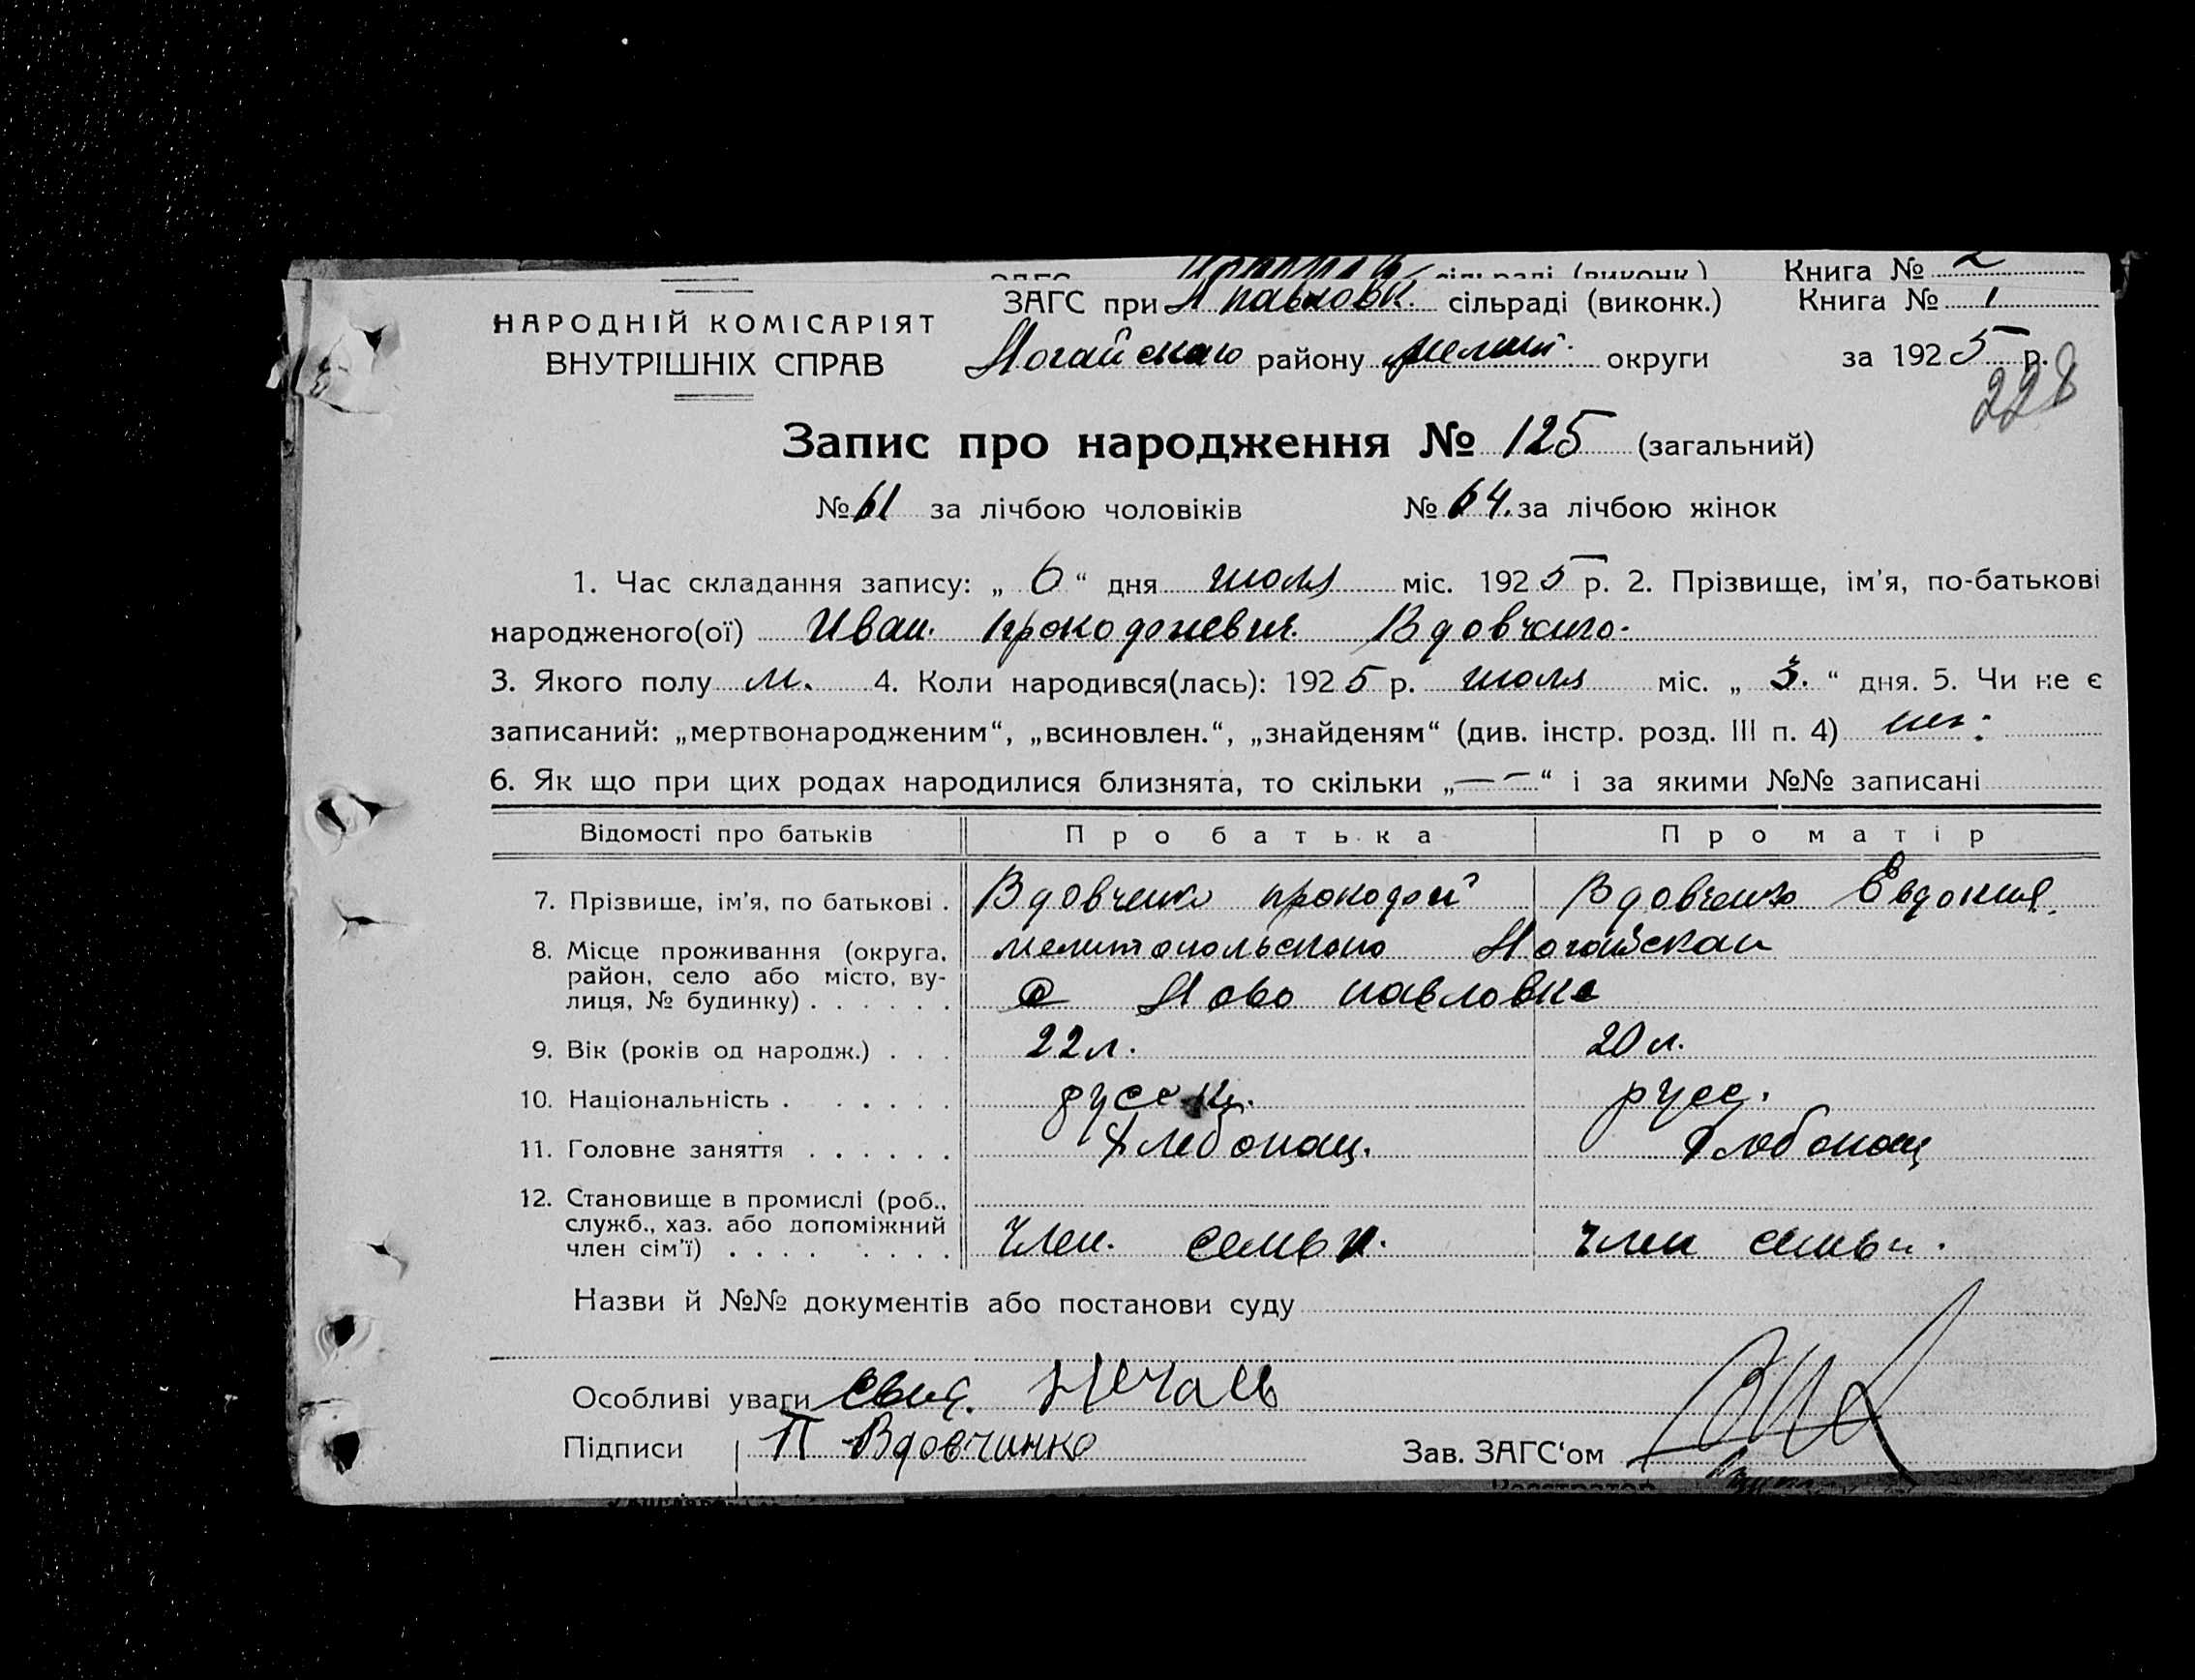 сільраді (виконк.) Книга № 2
ЗАГС при Н павловк. сільраді (виконк.) Книга № 1
НАРОДНІЙ КОМІСАРІЯТ
ВНУТРІШНІХ СПРАВ
Ногайскаго району мелит. округи за 1925 р.
228
Запис про народження № 125 (загальний)
№ 61 за лічбою чоловіків № 64. за лічбою жінок
1. Час складання запису: „ 6 “ дня июля міс. 1925 р. 2. Прізвище, ім’я, по-батькові
народженого(ої) Иван. Вдовченко.
3. Якого полу м. 4. Коли народився(лась): 1925 р. июля міс. „ 3. “ дня. 5. Чи не є
записаний: „мертвонародженим“, „всиновлен.“, „знайденям“ (див. інстр. розд. III п. 4) нет.
6. Як що при цих родах народилися близнята, то скільки „— —“ і за якими №№ записані
Відомості про батьків Про батька Про матір
7. Прізвище, ім’я, по батькові . Вдовченко Вдовченко Евдокия.
8. Місце проживання (округа, мелитопольскаго Ногайскаи
район, село або місто, ву-
лиця, № будинку) . . . . . . с Ново павловке
9. Вік (років од народж.) . . . 22 л. 20 л.
10. Національність . . . . . . русск. русс.
11. Головне заняття . . . . . . Хлебопащ. Хлебопащ
12. Становище в промислі (роб.,
служб., хаз. або допоміжний
член сім’ї) . . . . . . . . Член. семьи. член семьи.
Назви й №№ документів або постанови суду
Особливі уваги Нечаев
Підписи П Вдовчинко Зав. ЗАГС‘ом